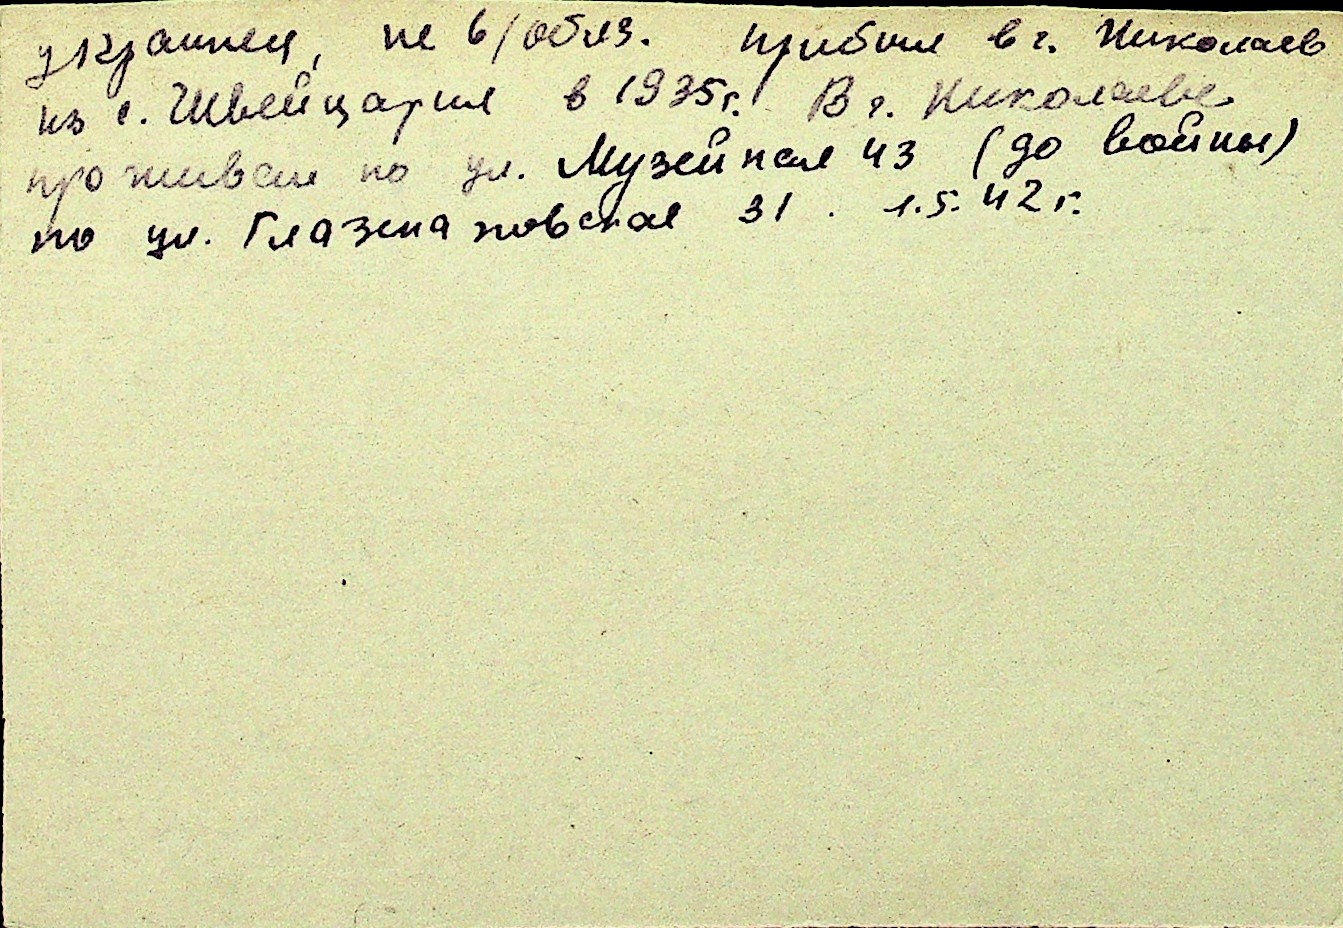 украинец, не в/обяз. прибыл в г. Николаев
из с. Швейцария в 1935г. В г. Николаеве
проживал по ул. Музейная 43 (до войны)
по ул. Глазенаповская 31. 1.5.42 г.